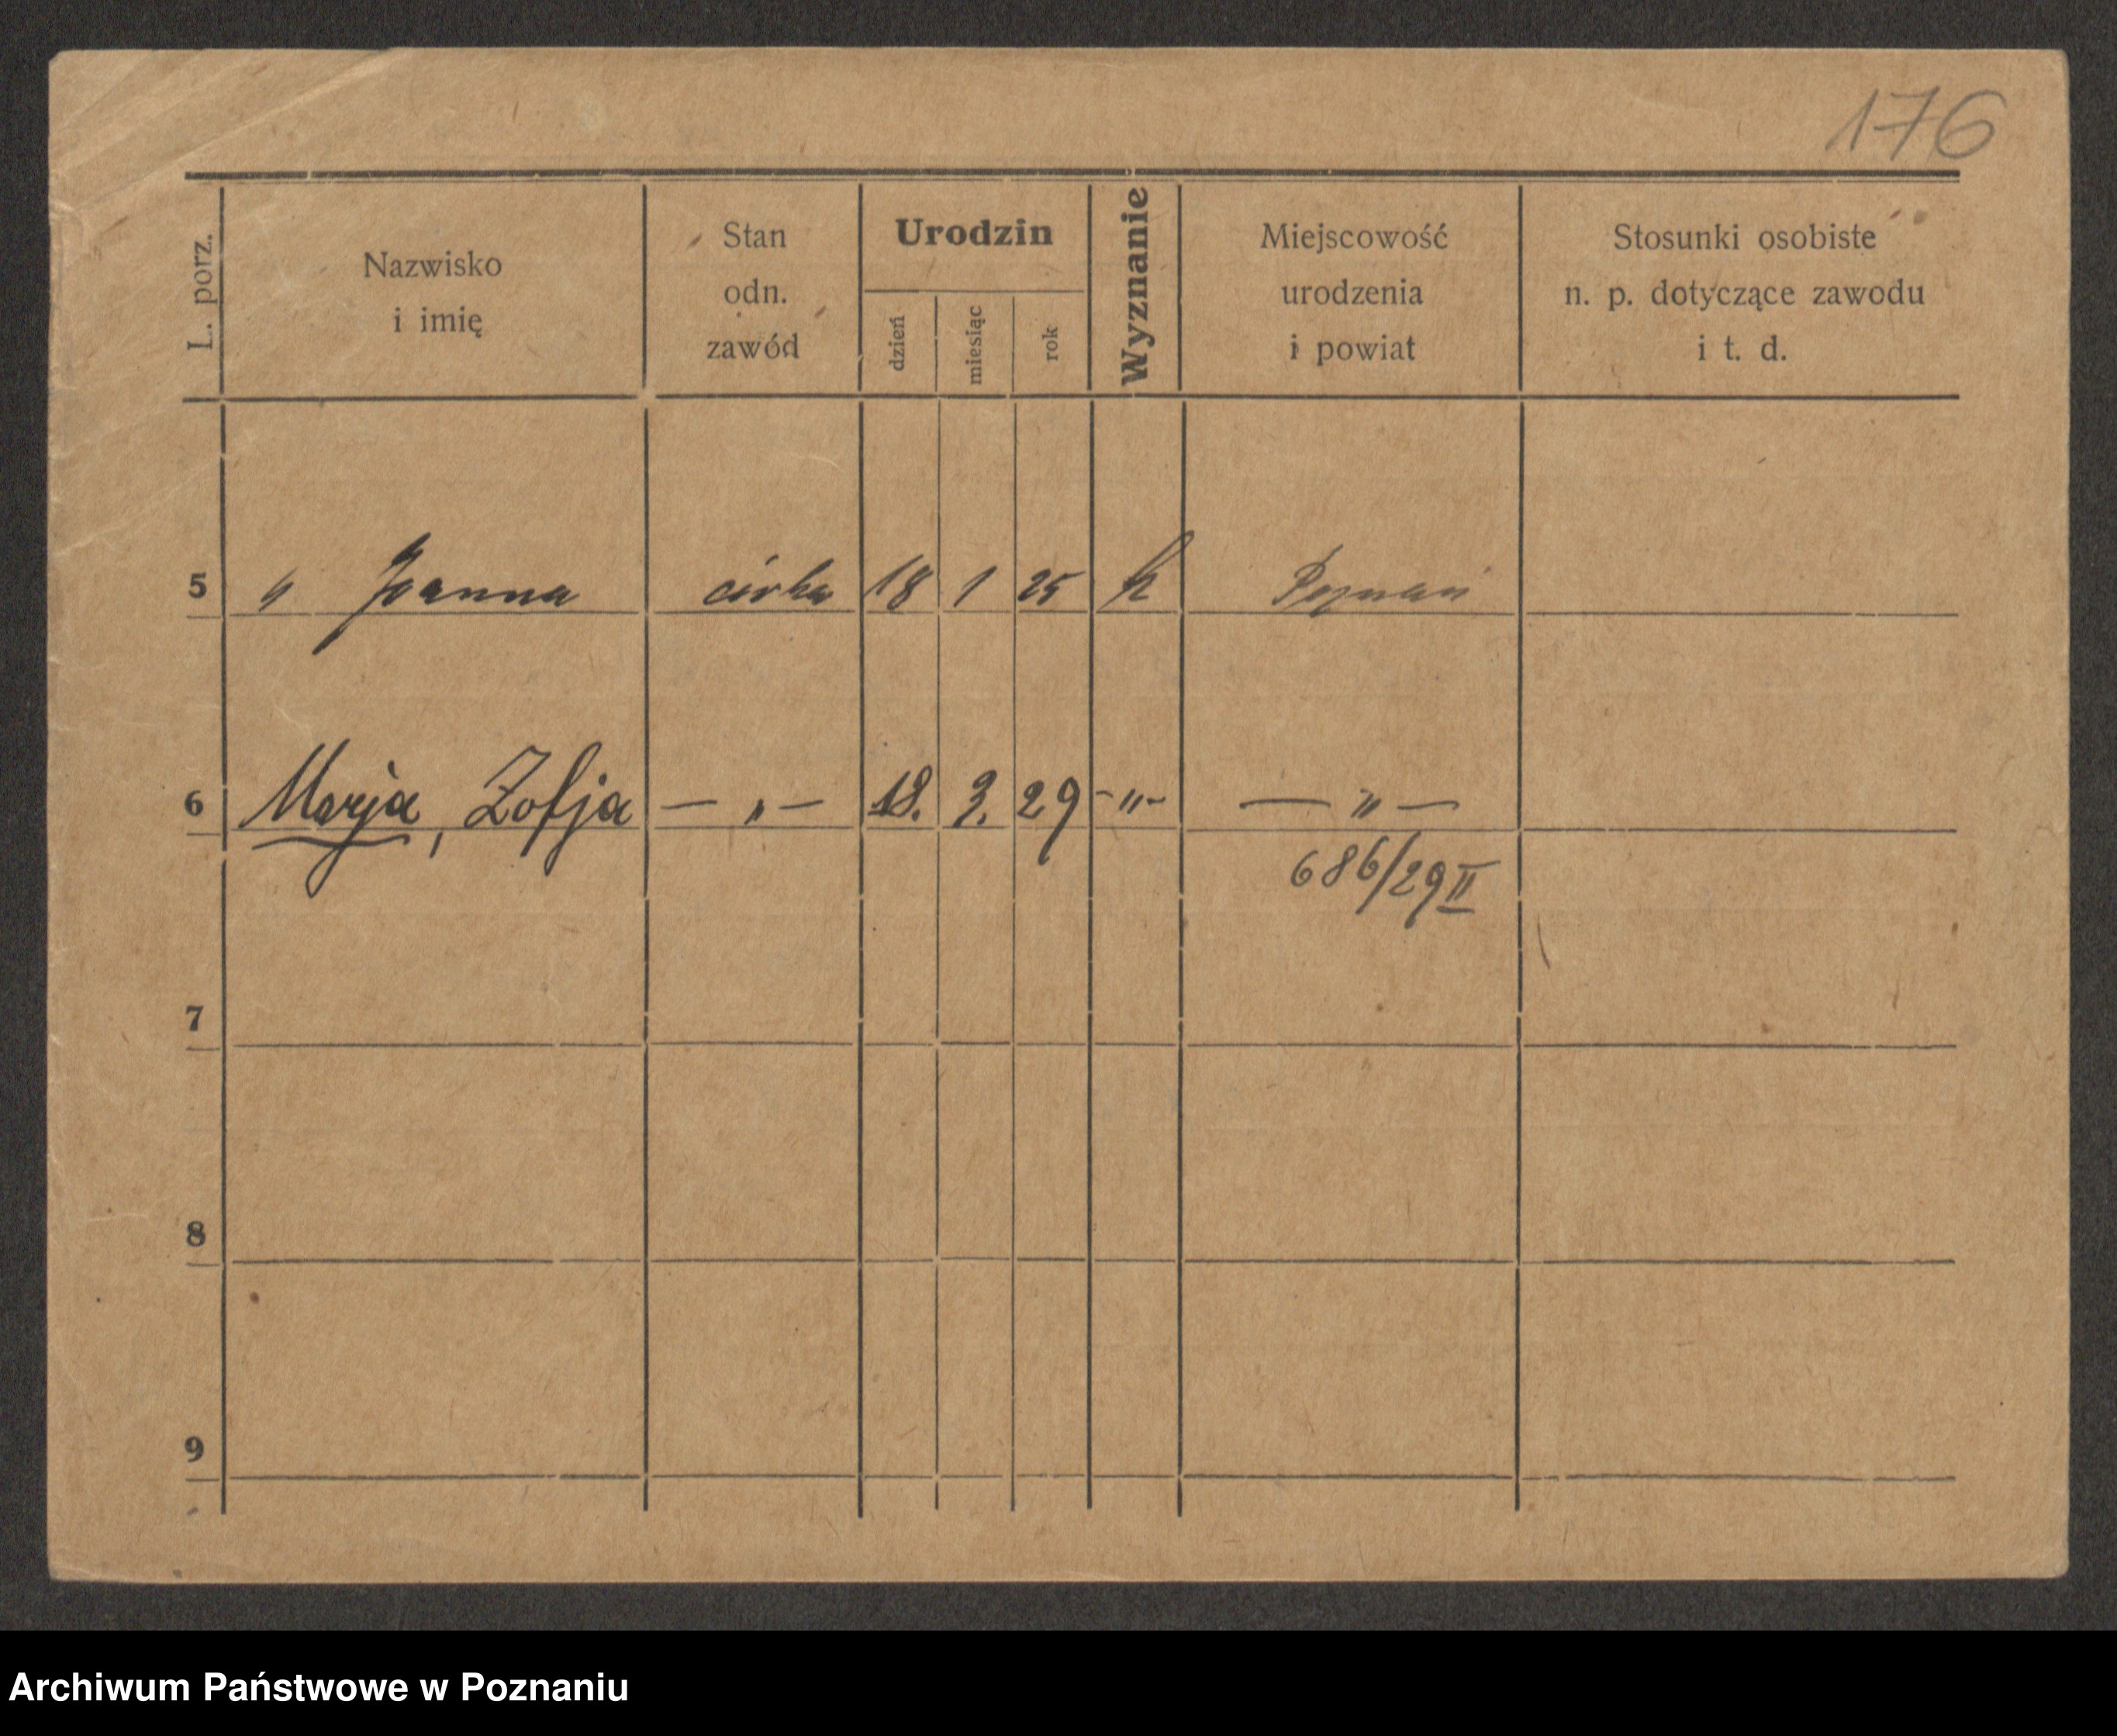 176
L. porz.
Nazwisko
i imię
Stan
odn.
zawód
Urodzin
dzień
miesiąc
rok
Wyznanie
Miejscowość
urodzenia
i powiat
Stosunki osobiste
n. p. dotyczące zawodu
i t. d.
5 " Joanna córka 18 1 25 k Poznań
6 Marja, Zofja — " — 18. 3. 29 - " - — " —
686/29 II
7
8
9
Archiwum Państwowe w Poznaniu